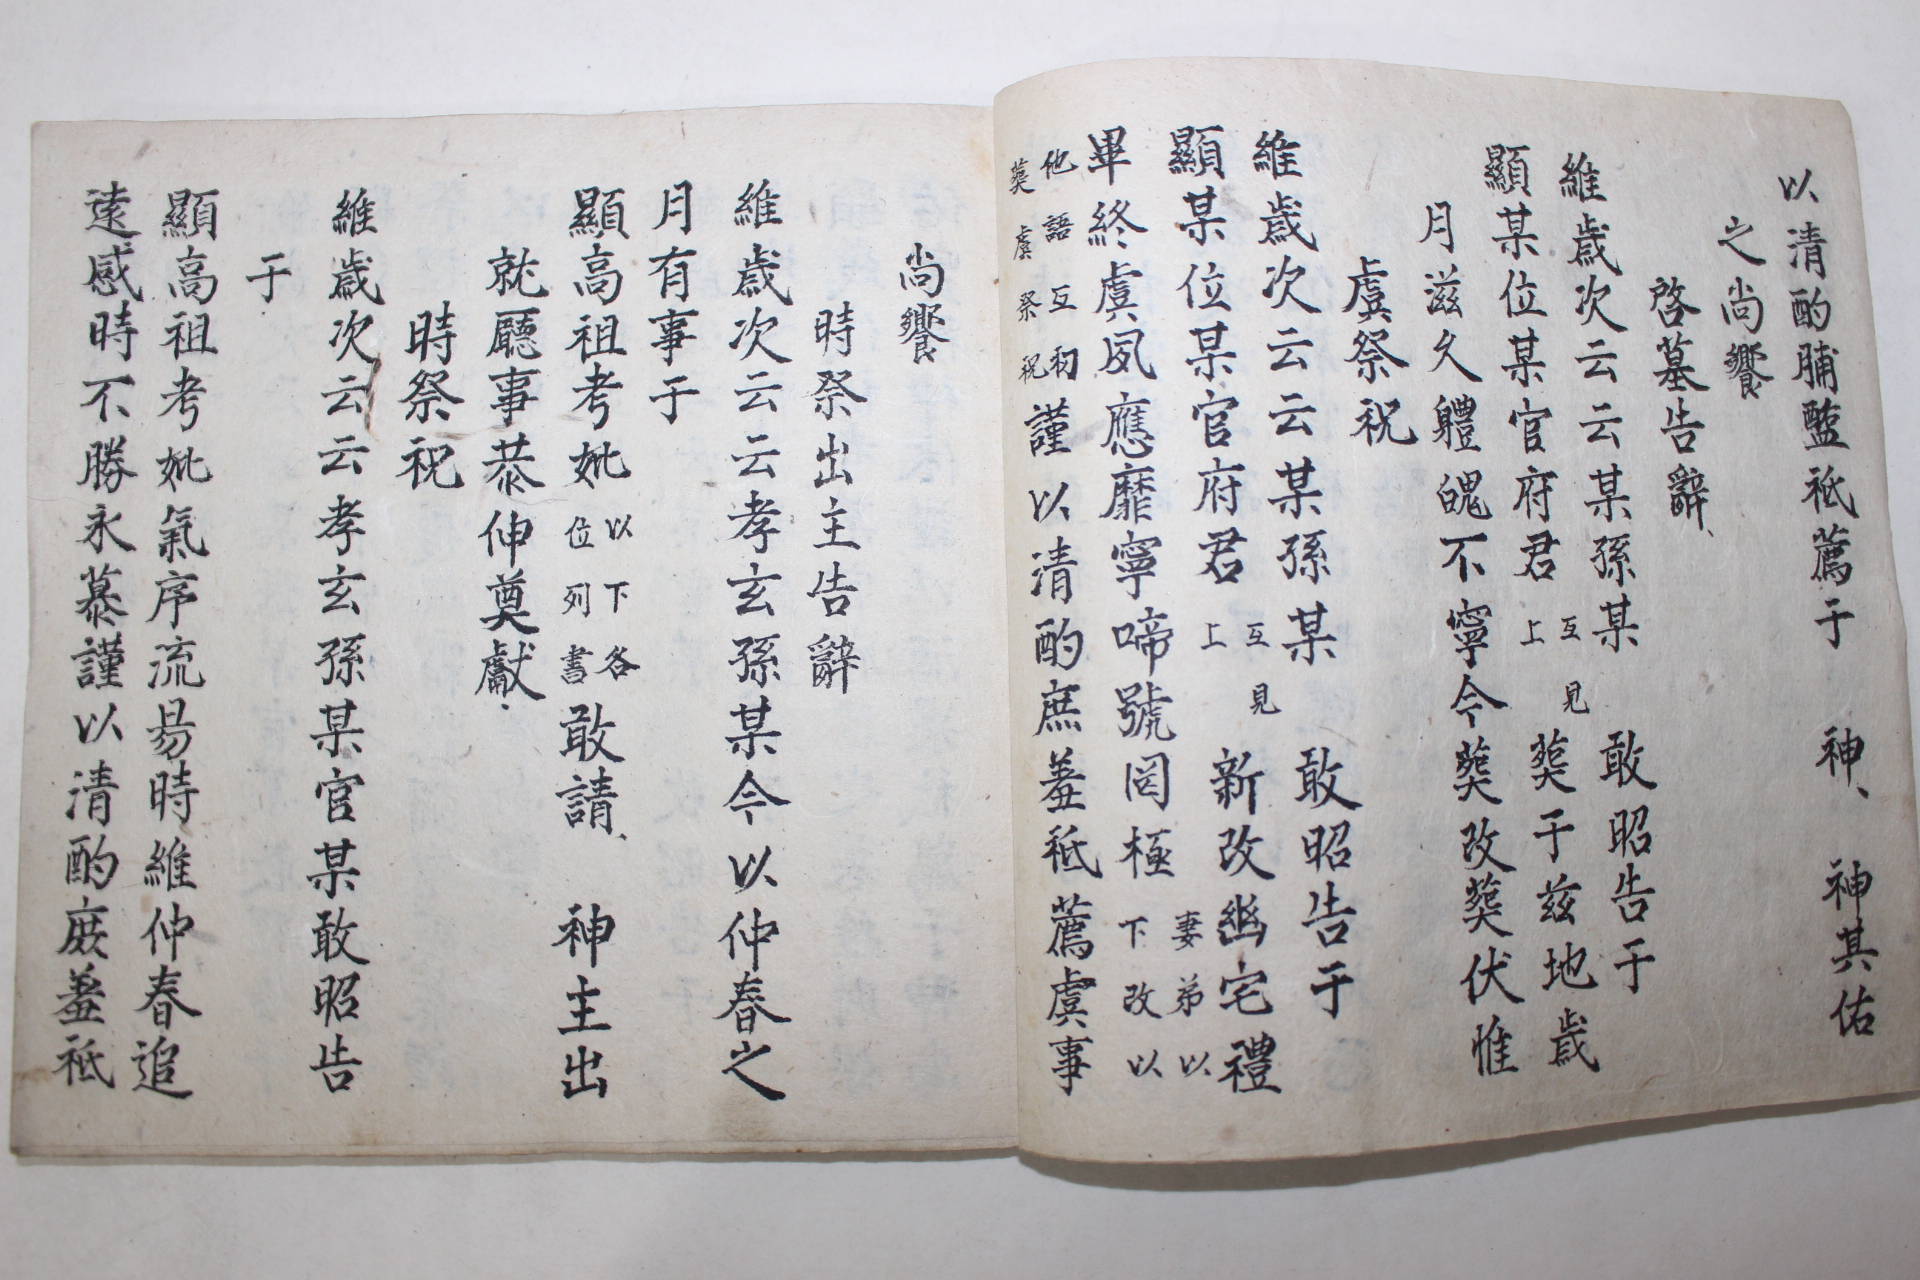 以清酌脯醢祗薦于 神、神其佑
之尚饗
啓墓告辭、
維歲次云云某孫某 敢昭告于
顯某位某官府君 互見上 葬于茲地歲
月滋久軆魄不寧今葬改葬伏惟
虞祭祝
維歲次云云某孫某 敢昭告于
顯某位某官府君 互見上 新改幽宅禮
畢終虞夙應靡寧啼號罔極 妻弟以下改以
他語互初葬虞祭祝 謹以清酌庶羞祗薦虞事
尚饗
時祭出主告辭
維歲次云云孝玄孫某今以仲春之
月有事于
顯高祖考妣 以下各位列書 敢請、 神主出
就廳事恭伸奠獻、
時祭祝
維歲次云云孝玄孫某官某敢昭告
于
顯高祖考妣氣序流易時維仲春追
遠感時不勝永慕謹以清酌庶羞祗